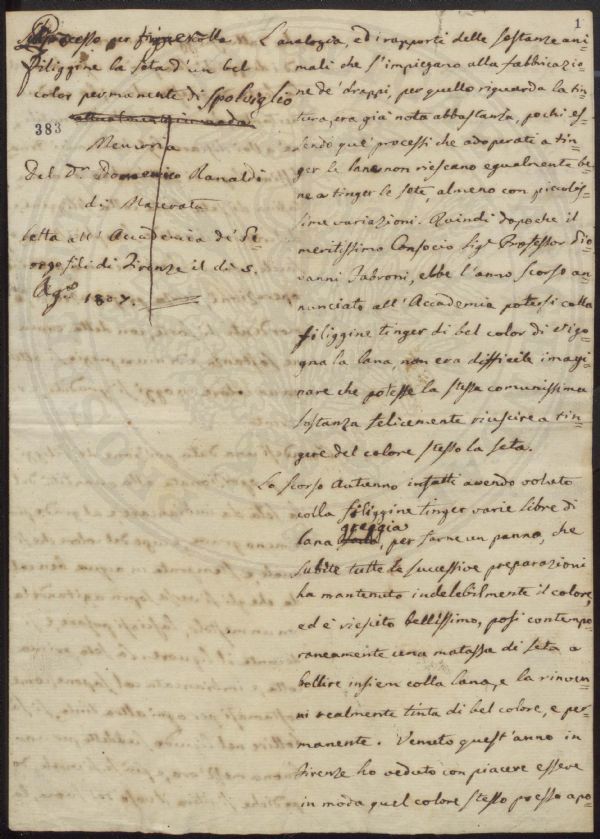 1
Processo per tinger colla
filiggine la seta d'un bel
color permanente di Spolviglio
383
Memoria
del D.r Domenico Ranaldi
di Macerata
letta all' Accademia de' Ge-
orgofili di Firenze il dì 5.
Ag.to 1807.
L'analogia, ed i rapporti delle sostanze ani-
mali che s'impiegano alla fabbricazio-
ne de' drappi, per quello riguarda la tin-
tura, era già nota abbastanza, pochi es-
sendo que' processi che adoperati a tin-
ger le lane non riescano egualmente be-
ne a tinger le sete, almeno con piccolis-
sime variazioni. Quindi dopoche il
meritissimo Consocio Sig.r Professor Gio-
vanni Fabroni, ebbe l'anno scorso an-
nunciato all'Accademia potersi colla
filiggine tinger di bel color di vigo-
gna la lana, non era difficile imagi-
nare che potesse la stessa comunissima
sostanza felicemente riuscire a tin-
gere del colore stesso la seta.
Lo scorso Autunno infatti avendo voluto
colla filiggine tinger varie libre di
greggia
lana, per farne un panno, che
subite tutte le successive preparazioni
ha mantenuto indelebilmente il colore,
ed è riescito bellissimo, posi contempo-
raneamente una matassa di seta a
bollire insiem colla lana, e la rinven-
ni realmente tinta di bel colore, e per-
manente. Venuto quest'anno in
Firenze ho veduto con piacere essere
in moda quel colore stesso presso a po-